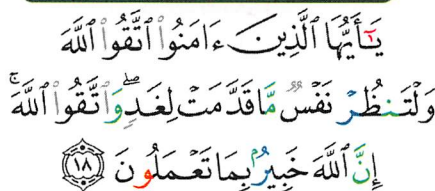 يَٰٓأَيُّهَا ٱلَّذِينَ ءَامَنُوا۟ ٱتَّقُوا۟ ٱللَّهَ
وَلْتَنظُرْ نَفْسٌ مَّا قَدَّمَتْ لِغَدٍۖ وَٱتَّقُوا۟ ٱللَّهَۚ
إِنَّ ٱللَّهَ خَبِيرٌۢ بِمَا تَعْمَلُونَ ١٨